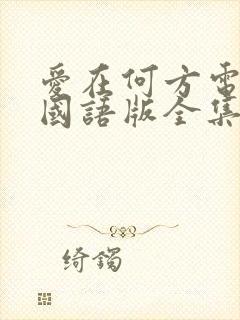 愛在何方電
國語版全集
绮鐲